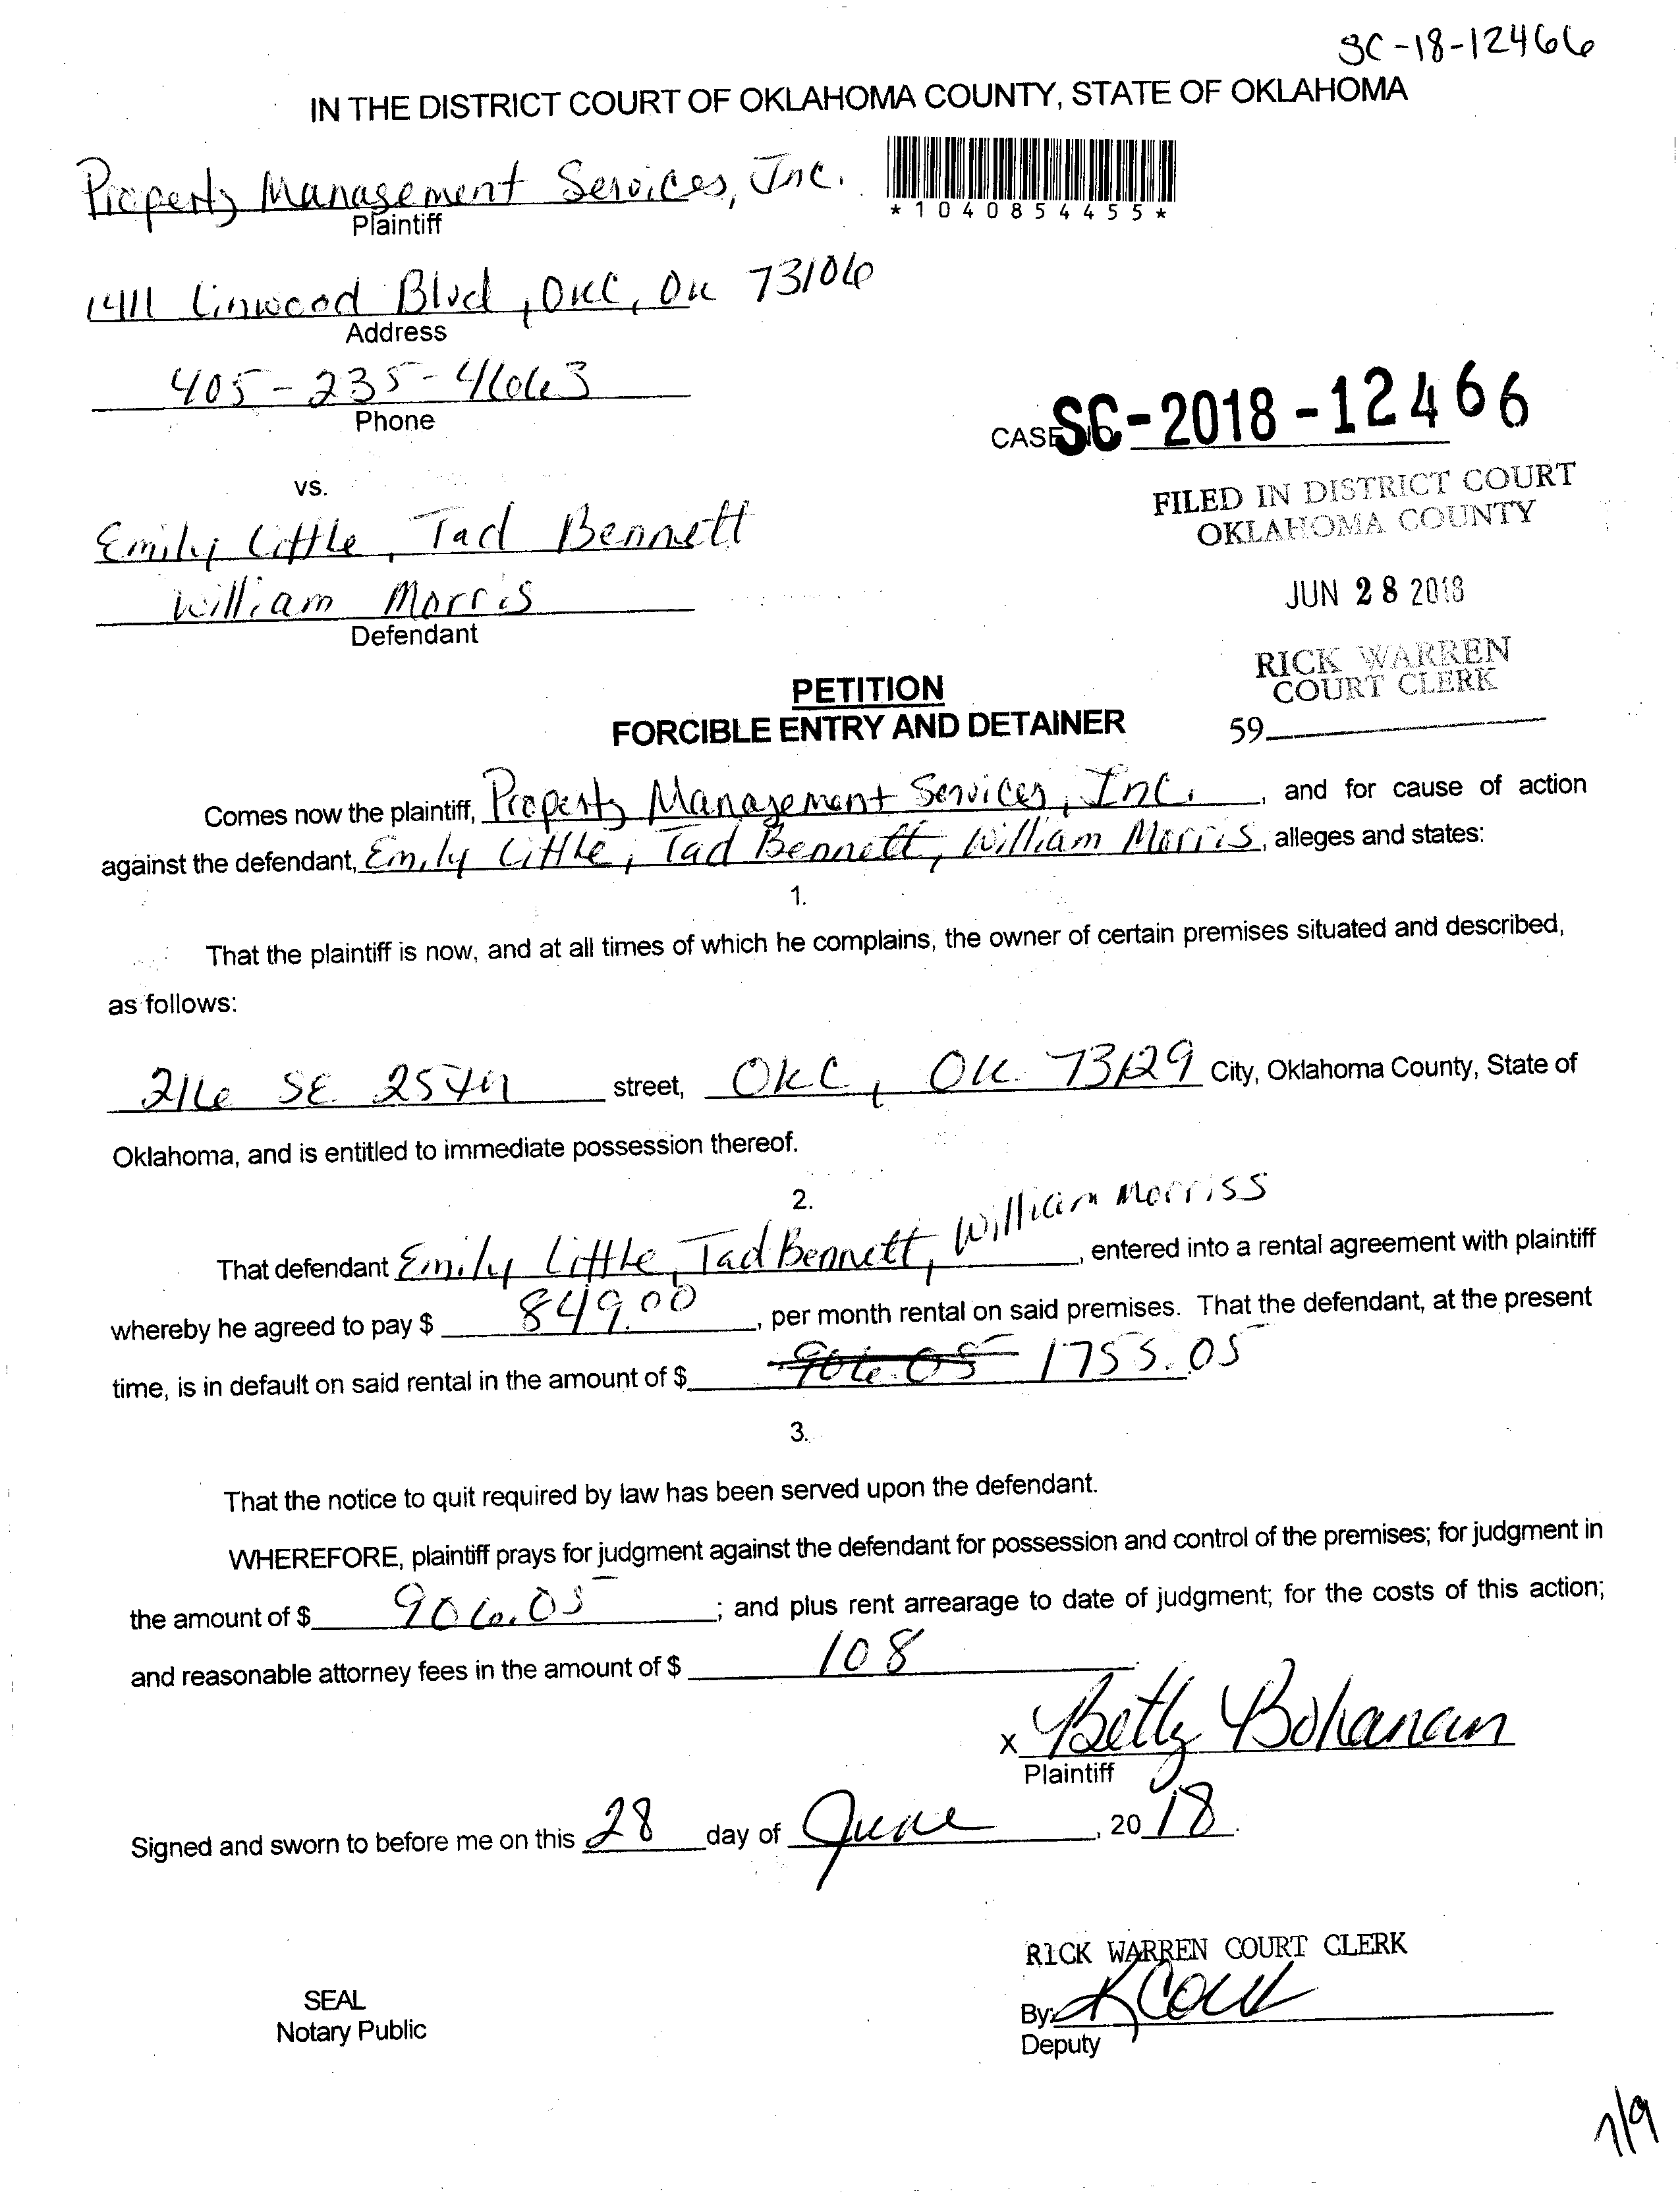 SC-18-12466
IN THE DISTRICT COURT OF OKLAHOMA COUNTY, STATE OF OKLAHOMA
Property Management Services, Inc.
Plaintiff
*1040854455*
1411 Linwood Blvd, OKC, OK 73106
Address
405-235-4663
Phone
CASE NO. SC-2018-12466
vs.
FILED IN DISTRICT COURT
OKLAHOMA COUNTY
Emily Little, Tad Bennett
William Morris
Defendant
JUN 28 2018
RICK WARREN
COURT CLERK
59
PETITION
FORCIBLE ENTRY AND DETAINER
Comes now the plaintiff, Property Management Services, Inc., and for cause of action
against the defendant, Emily Little, Tad Bennett, William Morris, alleges and states:
1.
That the plaintiff is now, and at all times of which he complains, the owner of certain premises situated and described,
as follows:
216 SE 25th street, OKC, OK 73129 City, Oklahoma County, State of
Oklahoma, and is entitled to immediate possession thereof.
2.
That defendant Emily Little, Tad Bennett, William Morriss, entered into a rental agreement with plaintiff
whereby he agreed to pay $ 849.00, per month rental on said premises. That the defendant, at the present
time, is in default on said rental in the amount of $ 906.05 1755.05
3.
That the notice to quit required by law has been served upon the defendant.
WHEREFORE, plaintiff prays for judgment against the defendant for possession and control of the premises; for judgment in
the amount of $ 906.05; and plus rent arrearage to date of judgment; for the costs of this action;
and reasonable attorney fees in the amount of $ 108.
x Betty Bohanan
Plaintiff
Signed and sworn to before me on this 28 day of June, 2018.
RICK WARREN COURT CLERK
SEAL
Notary Public
By:
Deputy
7/9